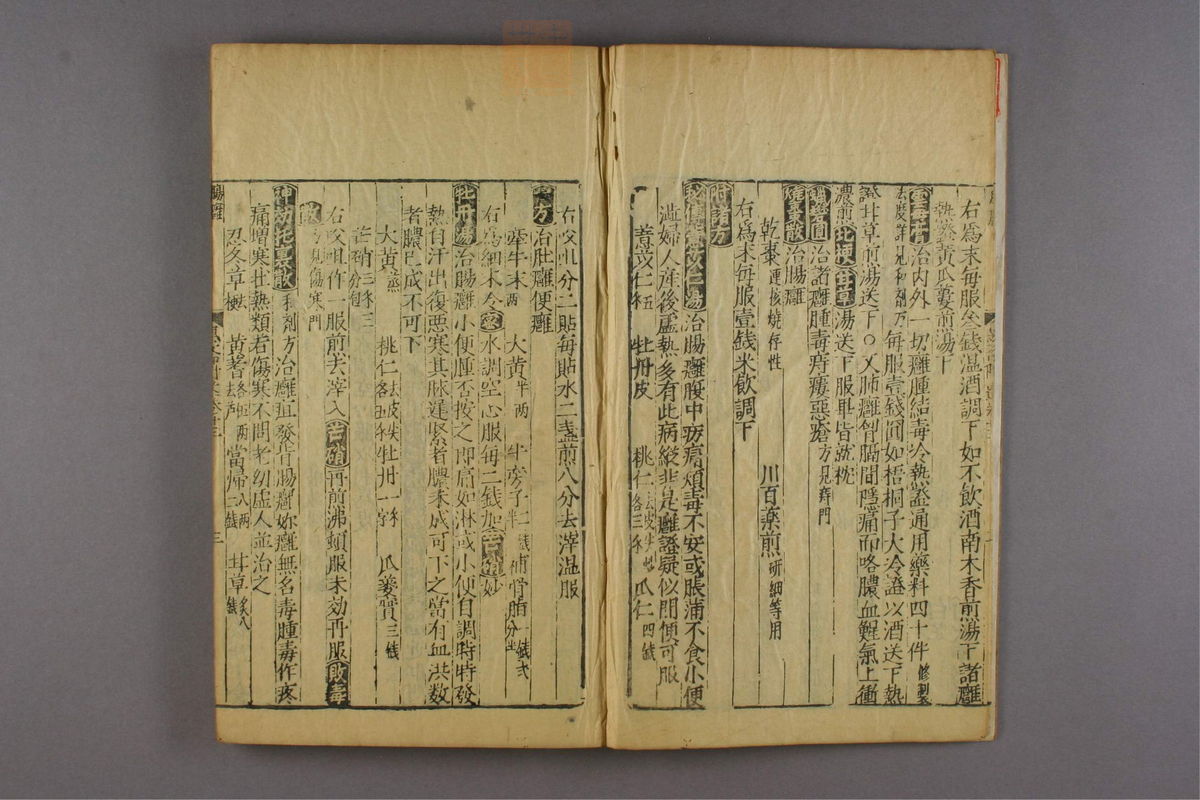 右為末每服叁錢温酒調下如不飲酒南木香煎湯下諸癰
熱𤼵黄瓜蔞煎湯下
治内外一切癰腫結毒冷熱證通用藥料四十件修製
每服壹錢圓如梧桐子大冷證以酒送下熱
證甘草煎湯送下○又肺癰胷膈間隱痛而咯膿血鯹氣上衝
濃煎桔梗甘草湯送下服畢皆就枕
蠟礬圓治諸癰腫毒痔瘻惡瘡方見癰門
棗散治腸癰
乾棗連核燒存性 川百藥煎研細等用
右為末每服壹錢米飲調下
附諸方
秘傳薏苡仁湯治腸癰腹中㽲痛煩毒不安或脹滿不食小便
澁婦人産後虚熱多有此病縱非是癰證疑似間便可服
薏苡仁五 牡丹皮 桃仁去皮尖各三 瓜仁四錢
右㕮咀分二貼每貼水二盞煎八分去滓温服
方治肚癰便癰
牽牛末 大黄半兩 牛蒡子 補骨脂
右為細末令蜜水調空心服每二錢加芒硝妙
牡丹湯治腸癰小便腫否按之即痛如淋或小便自調時時發
熱自汗出復惡寒其脉遲緊者膿未成可下之當有血洪数
者膿已成不可下
大黄蒸 桃仁去皮尖 牡丹一 瓜蔞實三錢
芒硝
右㕮咀作一服煎去滓入芒硝再煎沸頓服未効再服敗毒
散方見傷寒門
神効托裏散和劑方治癰疽發背腸癰妳癰無名毒腫毒作疼
痛增寒壮熱類若傷寒不問老幼虚人並治之
忍冬草去梗 黄蓍去芦 當歸 甘草
腸癰